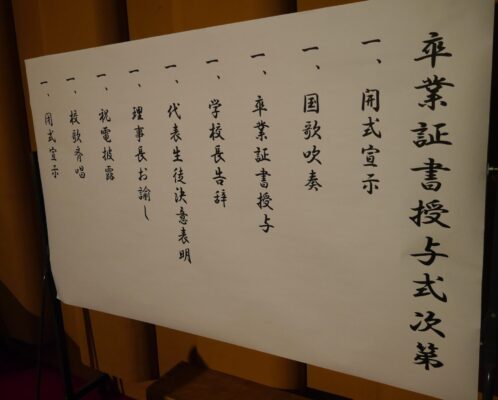 卒業証書授与式次第
一、開式宣示
一、国歌吹奏
一、卒業証書授与
一、学校長告辞
一、代表生徒決意表明
一、理事長お諭し
一、祝電披露
一、校歌斉唱
一、閉式宣示